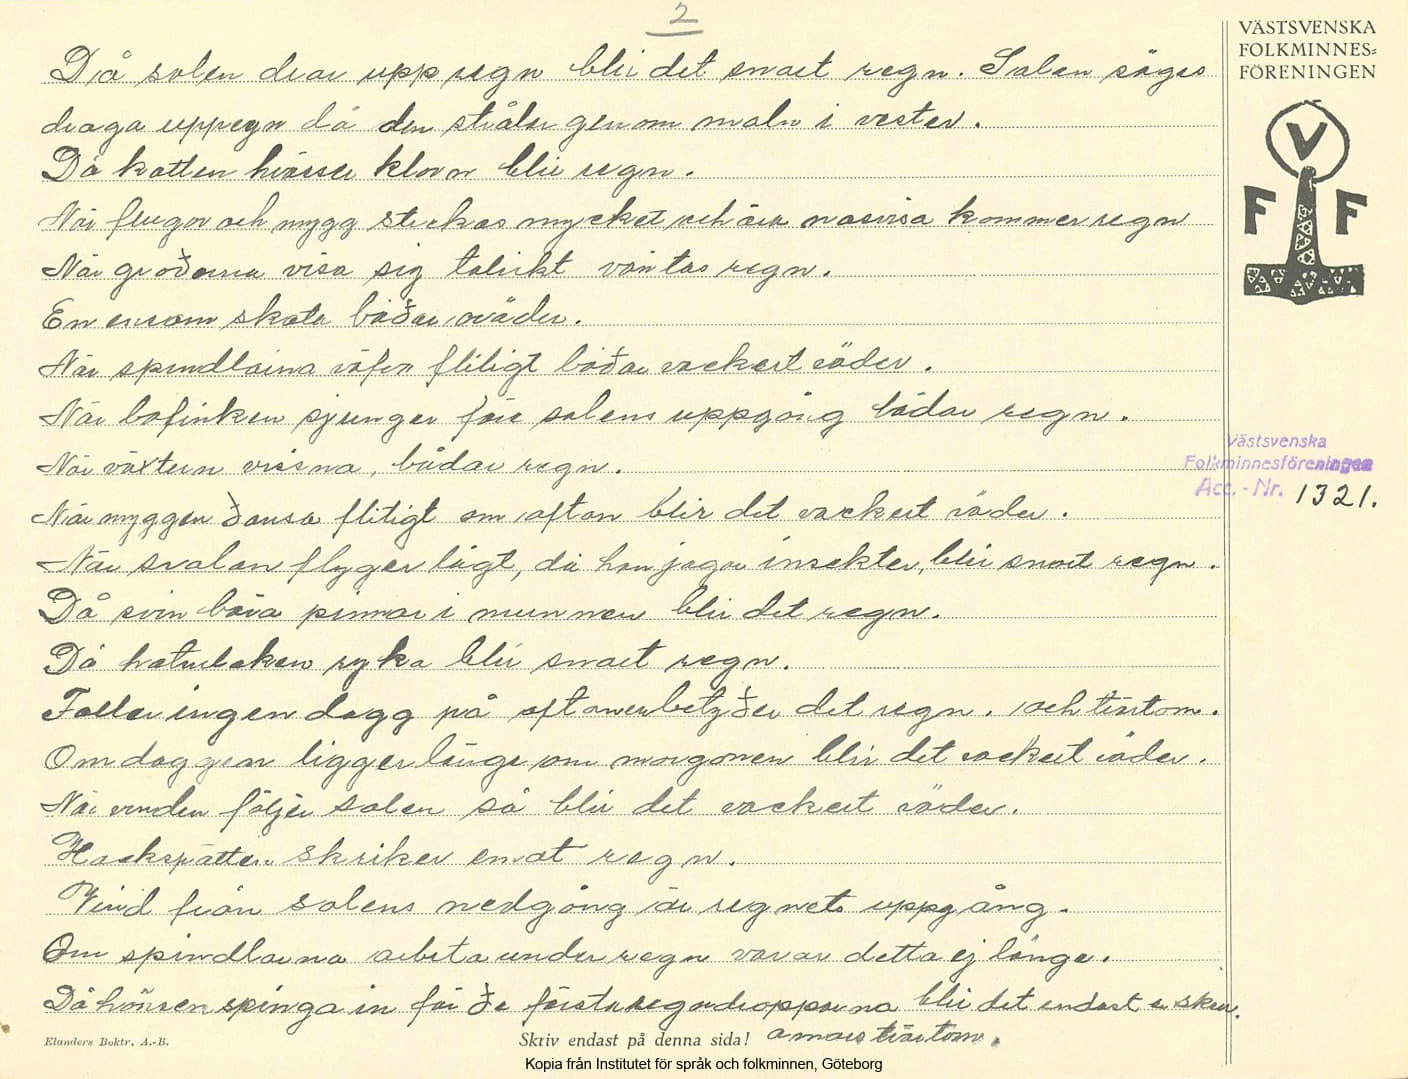 2
Då solen drar upp regn blir det snart regn. Solen säges
draga uppregn då den strålar genom moln i vester.
Då katten hvässer klorna blir regn.
När flugor och mygg stickas mycket och äro nosvisa kommer regn
När grodorna visa sig talrikt väntas regn.
En ensam skata bådar oväder.
När spindlarna väfva flitigt bådar vackert väder.
När bofinken sjunger före solens uppgång bådar regn.
När växtern vissna, bådar regn.
När myggen dansa flitigt om afton blir det vackert väder.
När svalan flyger lågt, då han jagar insekter, blir snart regn.
Då svin bära pinnar i munnen blir det regn.
Då ryka blir snart regn.
Faller ingen dagg på aftonen betyder det regn. och tvärtom.
Om daggen ligger länge om morgonen blir det vackert väder.
När vinden följer solen så blir det vackert väder.
Hackspätten skriker emot regn.
Vind från solens nedgång är regnets uppgång.
Om spindlarna arbeta under regn varar detta ej länge.
Då hönsen springa in för de första regndropparna blir det endast en skur.
annars tvärtom.
Elanders Boktr. A.-B.
Skriv endast på denna sida!
Kopia från Institutet för språk och folkminnen, Göteborg
VÄSTSVENSKA
FOLKMINNES=
FÖRENINGEN
V
F F
Västsvenska
Folkminnesföreningen
Acc.-Nr. 1321.